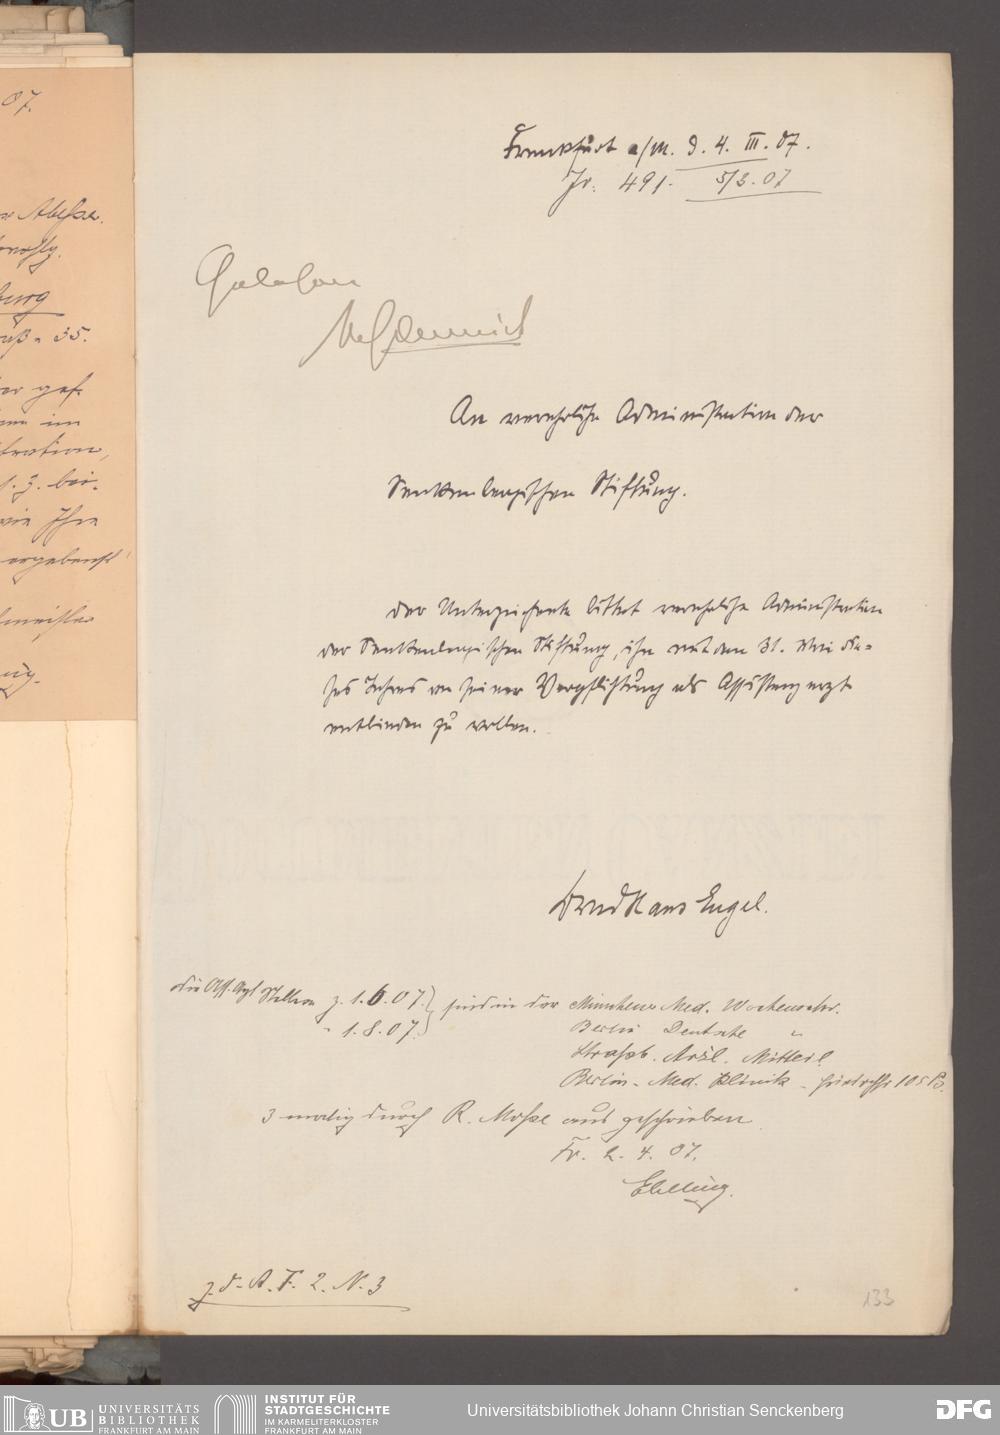 07.
Frankfurt a/M. d. 4. III. 07.
Jr. 491. 5/3. 07
Gelesen
An verehrliche Administration der
Senkenbergischen Stiftung.
burg
35.
Der Unterzeichnete bittet verehrliche Administration
der Senkenbergischen Stiftung, ihn mit dem 31. Mai die-
ses Jahres von seiner Verpflichtung als Assistenzarzt
entbinden zu wollen.
Ihre
ergebenst
Hans Engel.
Die Ass. Arzt Stellen z. 1. 6. 07. } sind in der Münchener Med. Wochenschr.
" 1. 8. 07. Berlin Deutsche "
Strassb. Ärzl. Mitteil.
Berlin. Med. Klinik - Friedrichstr 105 B.
3 malig durch R. Mosse aus geschrieben.
Fr. 2. 4. 07.
Ebeling.
z. d. A. F. 2. N. 3
133
UB UNIVERSITÄTS
BIBLIOTHEK
FRANKFURT AM MAIN
INSTITUT FÜR
STADTGESCHICHTE
IM KARMELITERKLOSTER
FRANKFURT AM MAIN
Universitätsbibliothek Johann Christian Senckenberg
DFG